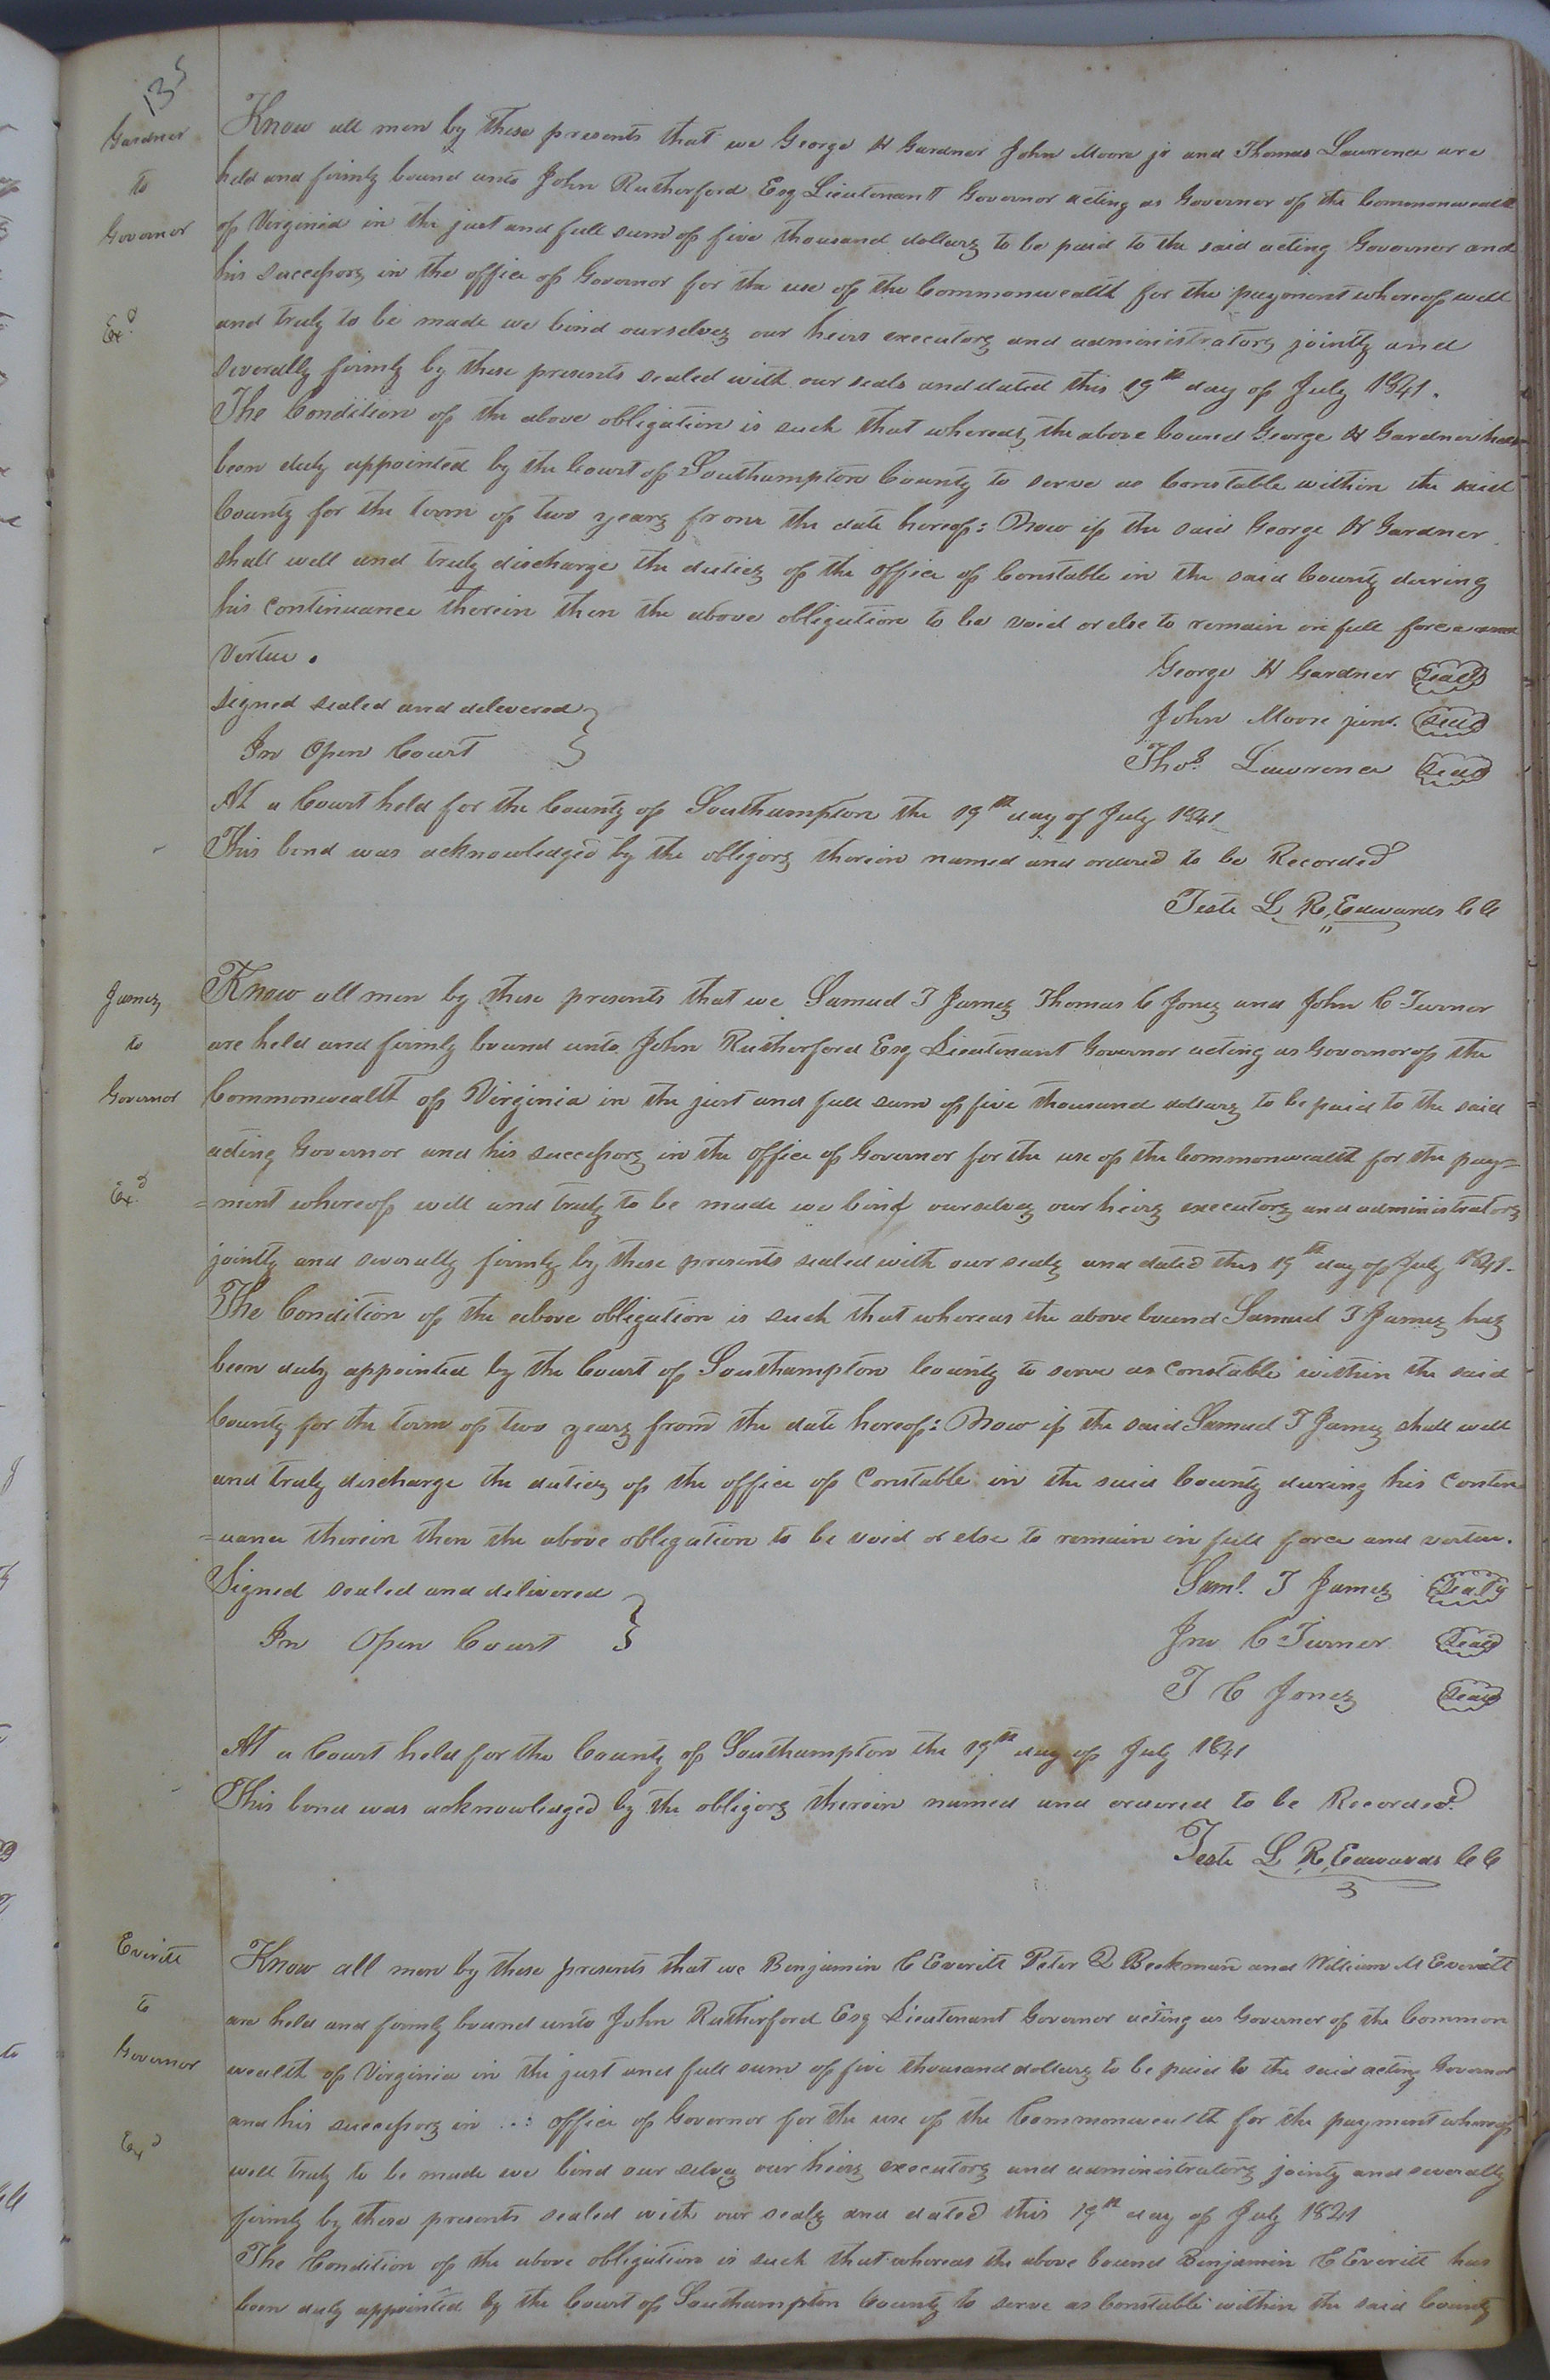 135
Gardner
to
Governor
Exd
Know all men by these presents that we George H Gardner John Moore jr and Thomas Lawrence are
held and firmly bound unto John Rutherford Esq Lieutenant Governor acting as Governor of the Commonwealth
of Virginia in the just and full sum of five thousand dollars to be paid to the said acting Governor and
his successors in the office of Governor for the use of the Commonwealth for the payment whereof well
and truly to be made we bind ourselves our heirs executors and administrators jointly and
severally firmly by these presents sealed with our seals and dated this 19th day of July 1841.
The Condition of the above obligation is such that whereas the above bound George H Gardner has
been duly appointed by the Court of Southampton County to serve as Constable within the said
County for the term of two years from the date hereof: Now if the said George H Gardner
shall well and truly discharge the duties of the office of Constable in the said County during
his continuance therein then the above obligation to be void or else to remain in full force and
Vertue.
George H Gardner Seal
signed sealed and delivered
John Moore junr. Seal
In Open Court
Thos. Lawrence Seal
At a Court held for the County of Southampton the 19th day of July 1841
This bond was acknowledged by the obligors therein named and ordered to be Recorded
Teste L R Edwards CC
James
to
Governor
Exd
Know all men by these presents that we Samuel T James Thomas C Jones and John C Turner
are held and firmly bound unto John Rutherford Esq Lieutenant Governor acting as Governor of the
Commonwealth of Virginia in the just and full sum of five thousand dollars to be paid to the said
acting Governor and his successors in the office of Governor for the use of the Commonwealth for the pay=
=ment whereof well and truly to be made we bind ourselves our heirs executors and administrators
jointly and severally firmly by these presents sealed with our seals and dated this 19th day of July 1841.
The Condition of the above obligation is such that whereas the above bound Samuel T James has
been duly appointed by the Court of Southampton County to serve as Constable within the said
County for the term of two years from the date hereof: Now if the said Samuel T James shall well
and truly discharge the duties of the office of Constable in the said County during his contin
=uance therein then the above obligation to be void or else to remain in full force and vertue.
Signed sealed and delivered
Saml. T James Seal
In Open Court
Jno C Turner Seal
T C Jones Seal
At a Court held for the County of Southampton the 19th day of July 1841
This bond was acknowledged by the obligors therein named and ordered to be Recorded
Teste L R Edwards CC
Everitt
to
Governor
Exd
Know all men by these presents that we Benjamin C Everitt Peter D Beekman and William M Everitt
are held and firmly bound unto John Rutherford Esq Lieutenant Governor acting as Governor of the Common
wealth of Virginia in the just and full sum of five thousand dollars to be paid to the said acting Governor
and his successors in office of Governor for the use of the Commonwealth for the payment whereof
well truly to be made we bind our selves our heirs executors and administrators jointy and severally
firmly by these presents sealed with our seals and dated this 19th day of July 1841
The Condition of the above obligation is such that whereas the above bound Benjamin C Everitt has
been duly appointed by the Court of Southampton County to serve as Constable within the said County